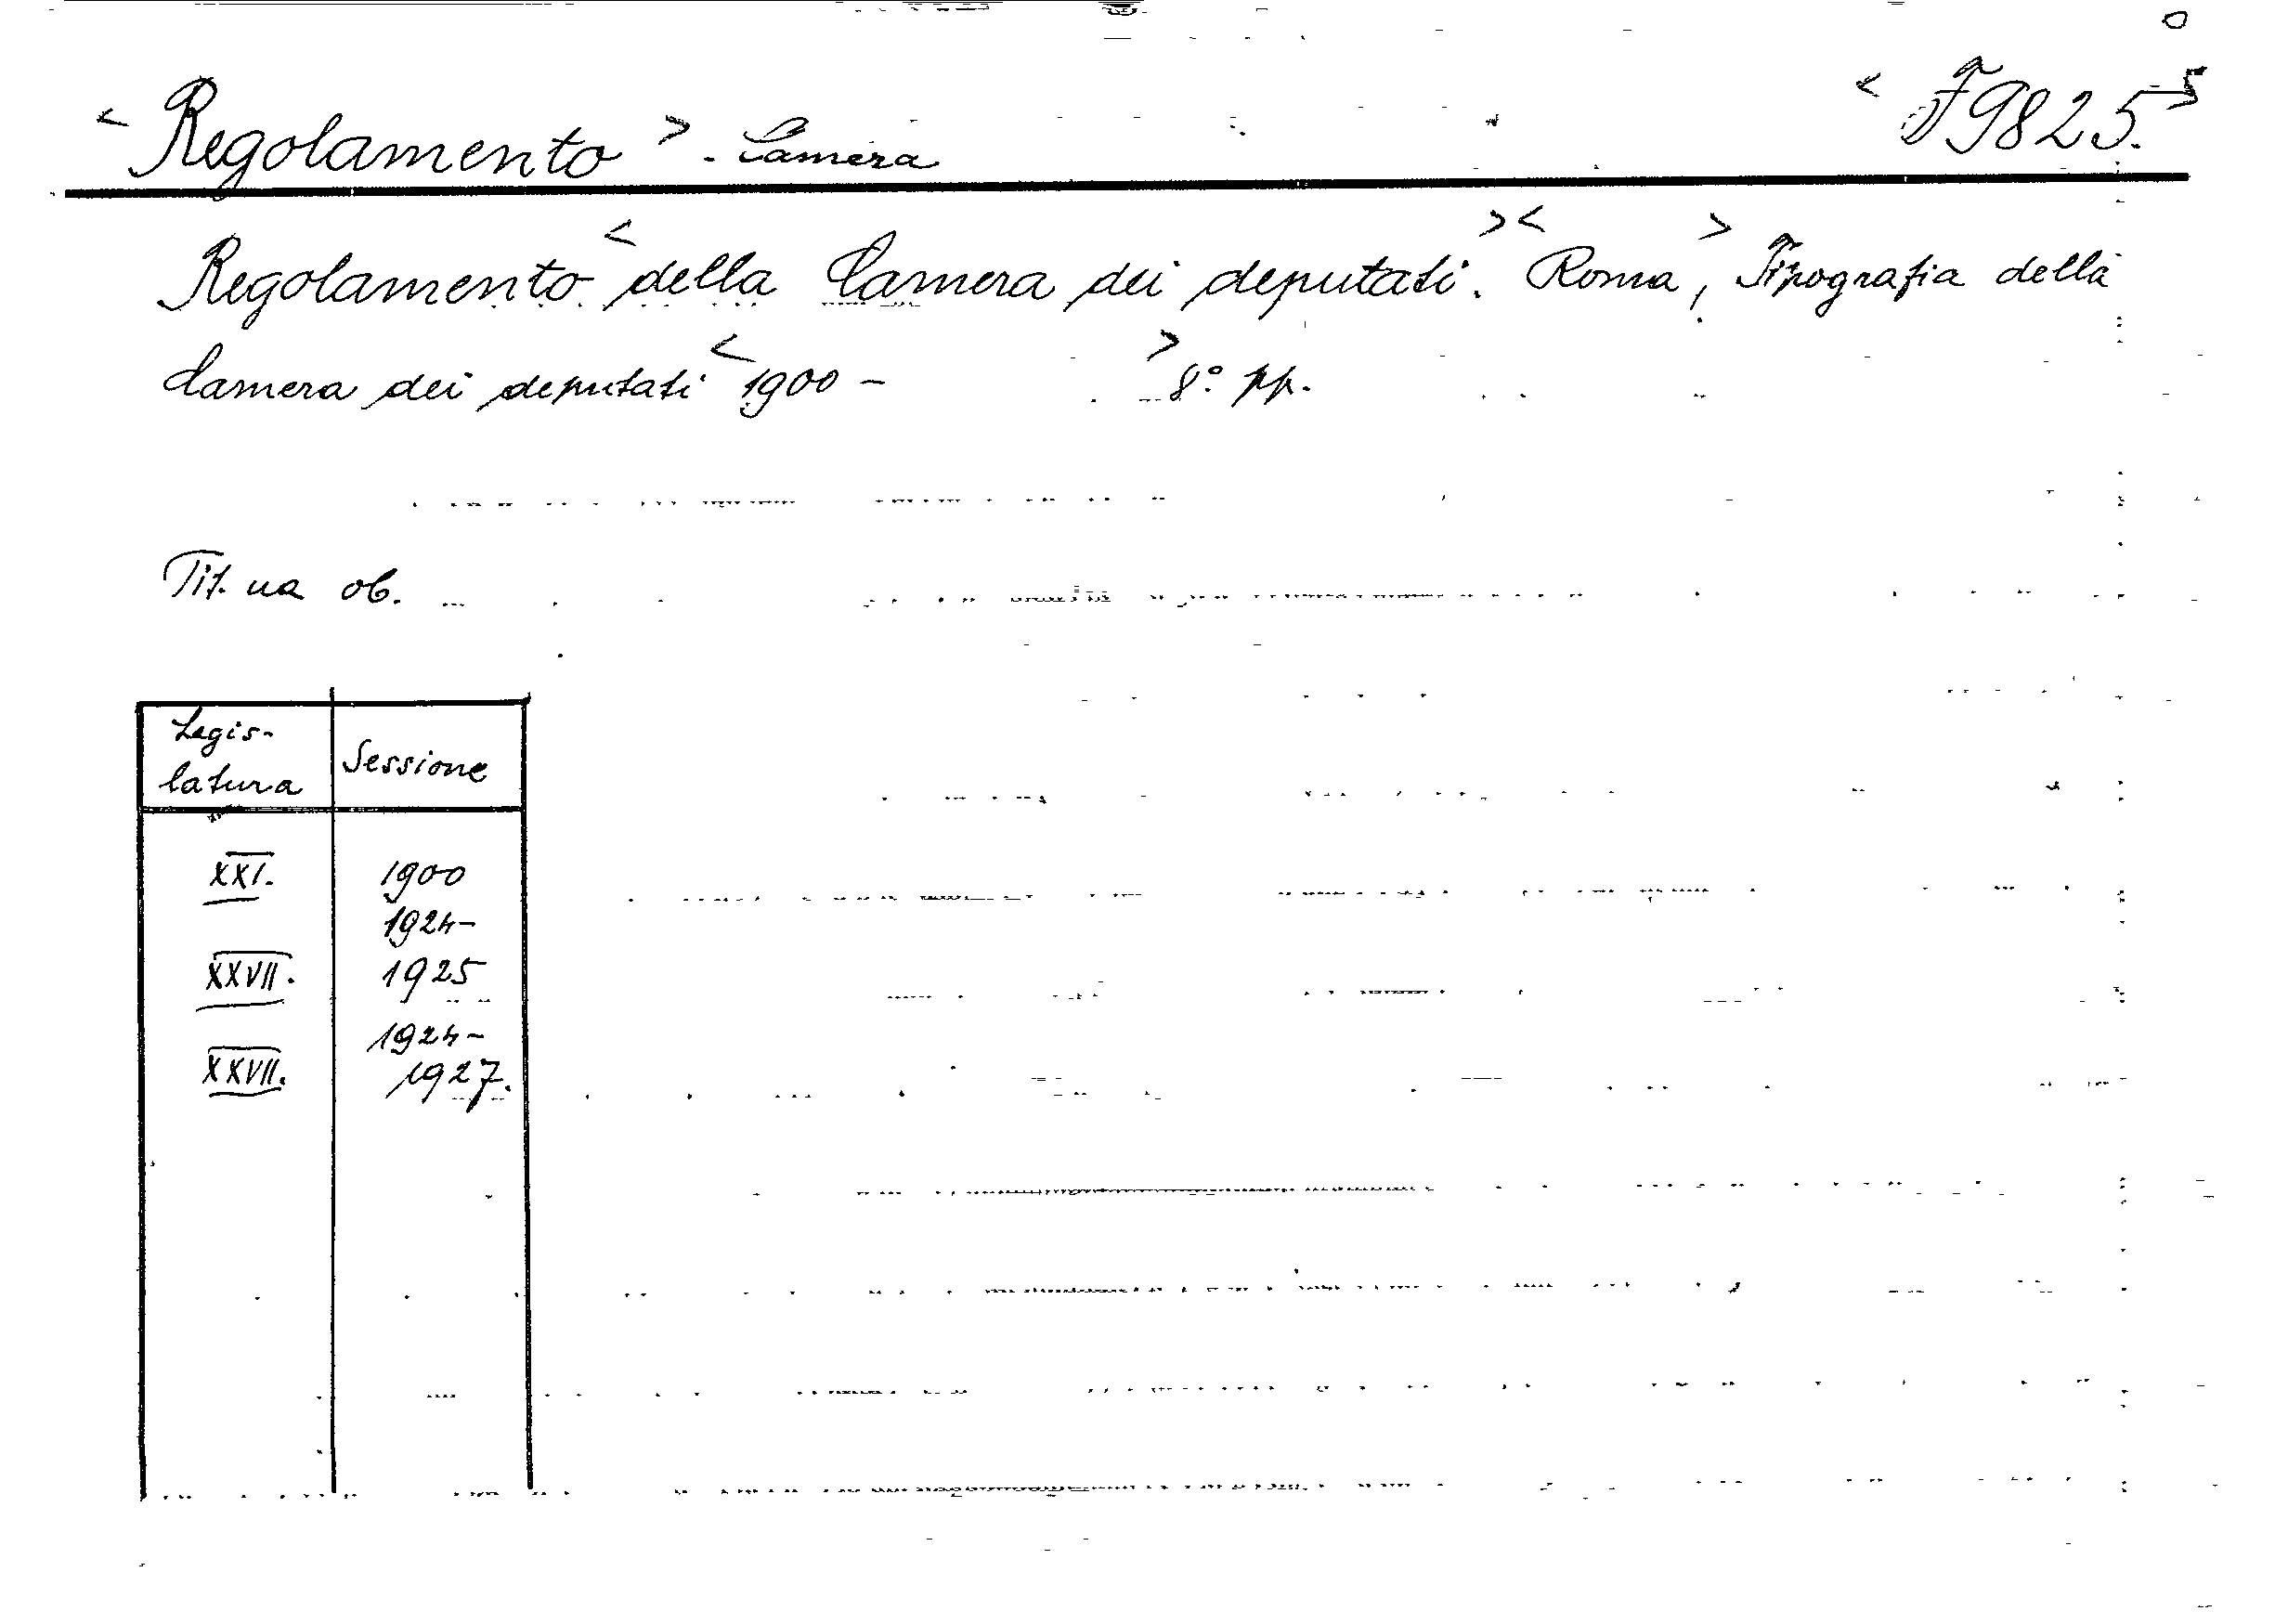 < Regolamento > . Camera < F 9825. >
Regolamento < della Camera dei deputati. > < Roma, > Tipografia della
Camera dei deputati < 1900 – > 8° pp.
Tit. na ob.
Legis- Sessione
latura
XXI. 1900
1924-
XXVII. 1925
1924-
XXVII. 1927.